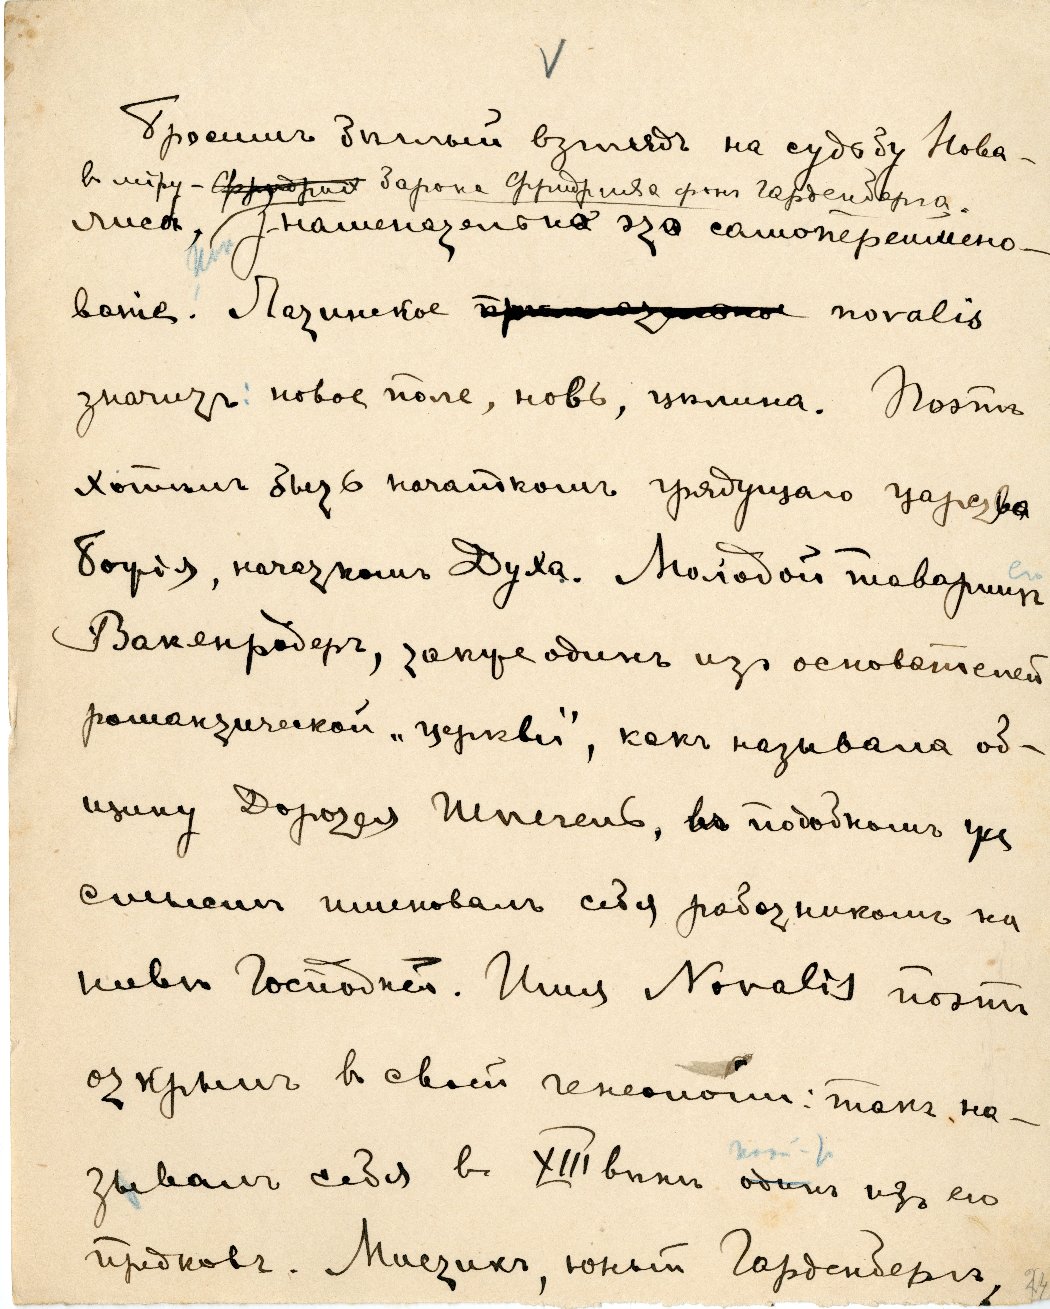 V
Бросимъ бѣглый взглядъ на судьбу Нова-
въ міру – Фридрих барона Фридриха фонъ Гарденберга.
лиса, Знаменательно это самопереимено-
ваніе. Латинское novalis
значитъ: новое поле, новь, цѣлина. Поэтъ
хотѣлъ быть начаткомъ грядущаго царства
Божія, начаткомъ Духа. Молодой товарищъ его
Вакенродеръ, также одинъ изъ основателей
романтической „церкви", какъ называла об-
щину Доротея Шлегель, въ подобномъ же
смыслѣ именовалъ себя работникомъ на
нивѣ Господней. Имя Novalis поэтъ
открылъ въ своей генеалогіи: такъ на-
зывалъ себя въ XIII вѣкѣ одинъ изъ его
предковъ. Мистикъ, юный Гарденбергъ,
24